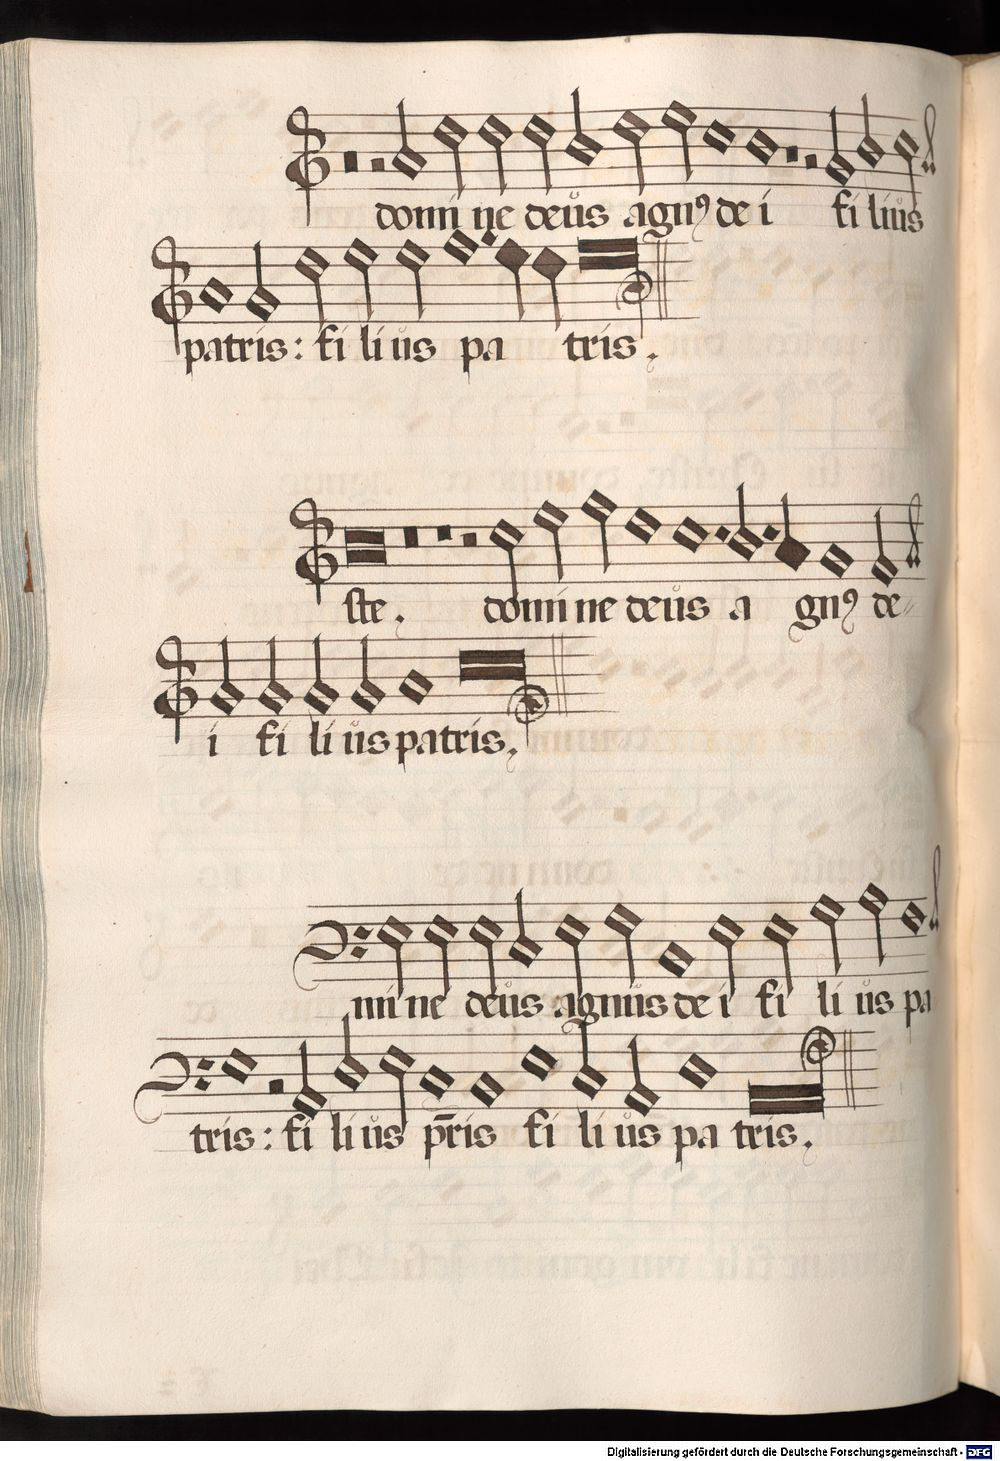 domi ne deůs agnꝰ de i fi liůs
patris : fi li ůs pa tris .
ste . domi ne deůs a gnꝰ de
i fi li ůs patris .
mi ne deůs agnůs de i fi li ůs pa
tris : fi li ůs p̄ris fi li ůs pa tris .
Digitalisierung gefördert durch die Deutsche Forschungsgemeinschaft - DFG